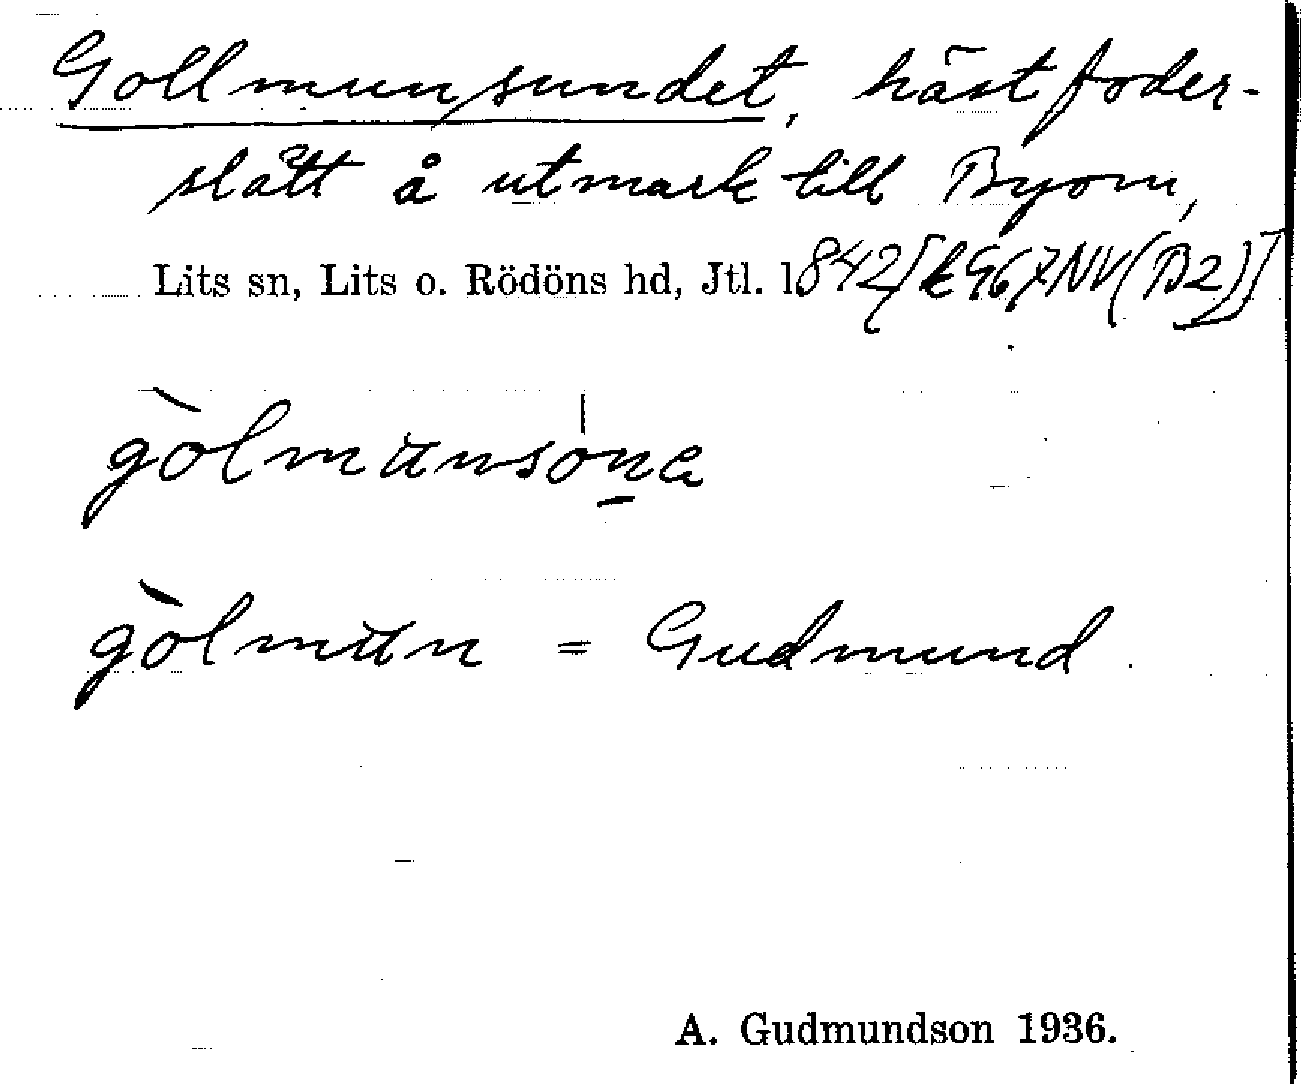 Gollmunsundet, hästfoder-
slått å utmark till Byom,
Lits sn, Lits o. Rödöns hd, Jtl. 1842/[k967NV(B2)]
gòlmunsóna
gòlmun = Gudmund.
A. Gudmundson 1936.